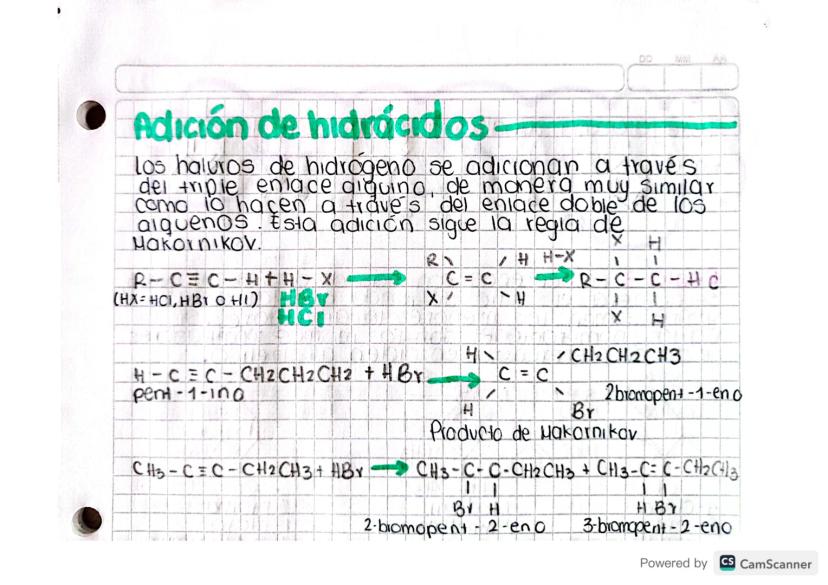 DD MM AA
Adición de hidrácidos
Los haluros de hidrógeno se adicionan a través
del triple enlace alquino, de manera muy similar
como lo hacen a través del enlace doble de los
alquenos. Esta adición sigue la regla de
Makornikov.
X H
R H H-X
R - C ≡ C - H + H - X C = C R - C - C - H C
(HX = HCl, HBr o HI) HBr X H
HCl X H
H CH2CH2CH3
H - C ≡ C - CH2CH2CH2 + HBr C = C
pent-1-ino 2bromopent-1-eno
H Br
Producto de Makornikov
CH3-C≡C-CH2CH3 + HBr CH3-C-C-CH2CH3 + CH3-C=C-CH2CH3
Br H H Br
2-bromopent-2-eno 3-bromopent-2-eno
Powered by CS CamScanner